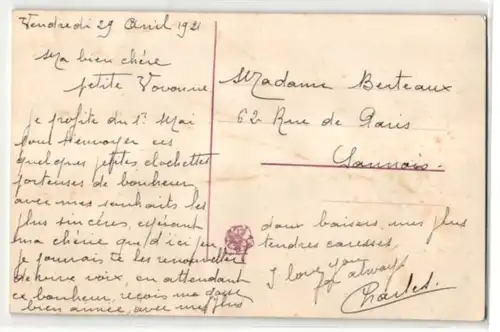 Vendredi 29 Avril 1921
Ma bien chère
petite Vovonne
Je profite du 1er Mai
pour t'envoyer ces
quelques petites clochettes
porteuses de bonheur
avec mes souhaits les
plus sincères, espérant
ma chérie que d'ici peu
je pourrais te les renouveller
de vive voix, en attendant
ce bonheur, reçois ma douce
bien aimée, avec mes plus
doux baisers, mes plus
tendres caresses
I love you
for always
Charles.
Madame Berteaux
62 Rue de Paris
Sannois.